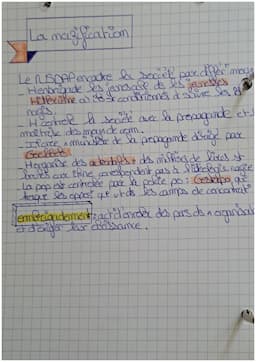 La nazification
Le NSDAP encadre la société par différ moyens
- Il embrigade les jeunes de les jeunesses
Hitlérienne où ils st conditionnés à suivre les
nazis.
- Il contrôle la société avec la propagande et
maîtrise des moyens de com.
ministère de la propagande dirigé par
Goebbels
- Il organise des autodafés + des milliers de livres st
brûlés car ne correspondent pas à l'idéologie nazie
- La pop est contrôlée par la police po : Gestapo que
traque les oppos et ds les camps de concentrat°
embrigadement : act° d'enrôler des pers ds organisat°
et d'exiger leur obéissance.